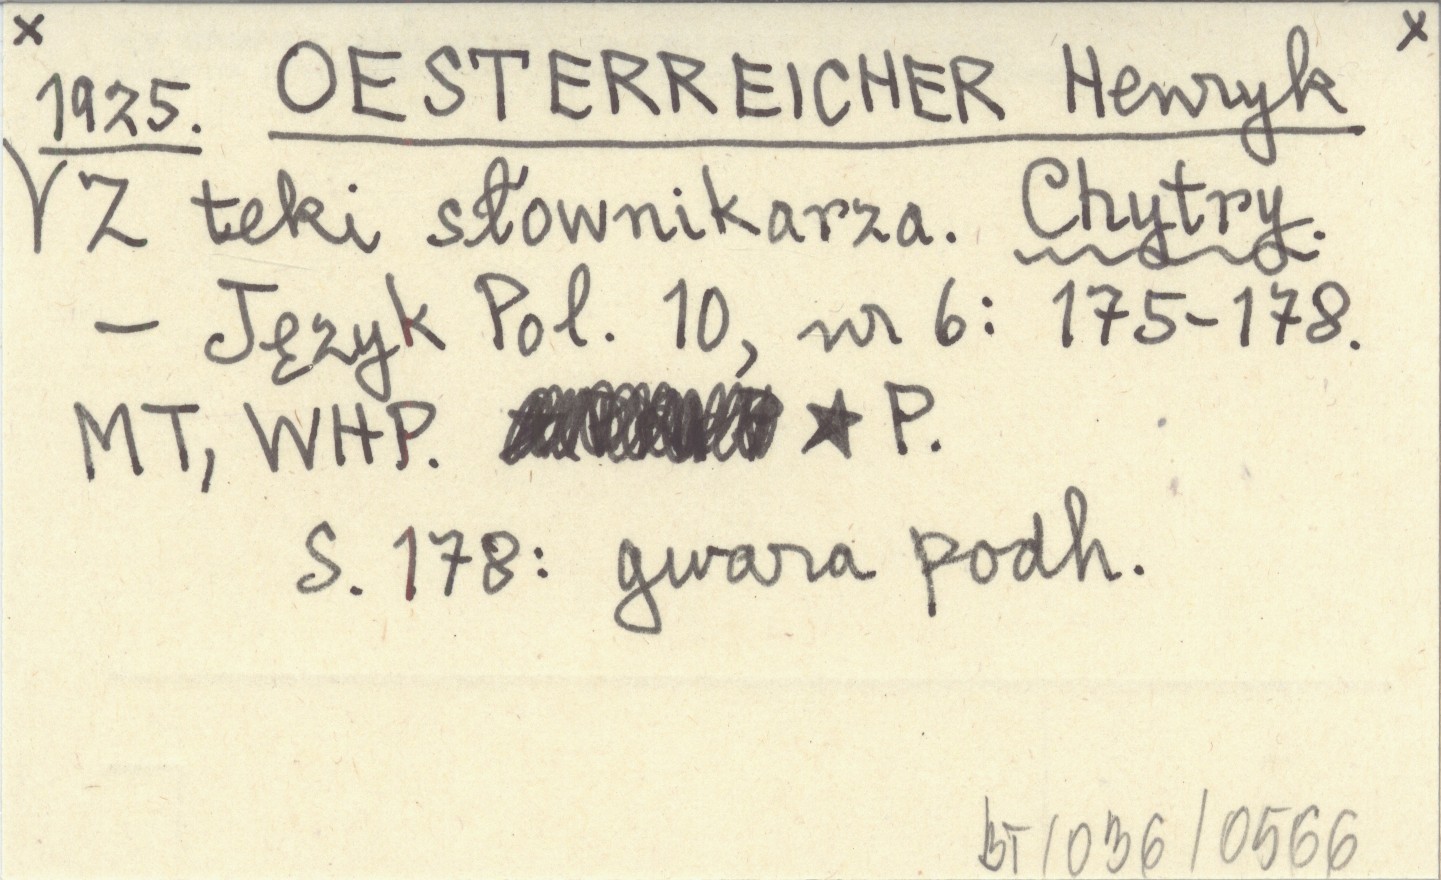 x x
1925. OESTERREICHER Henryk
√ Z teki słownikarza. Chytry.
— Język Pol. 10, nr 6: 175-178.
MT, WHP. ★ P.
S. 178: gwara podh.
BT/036/0566